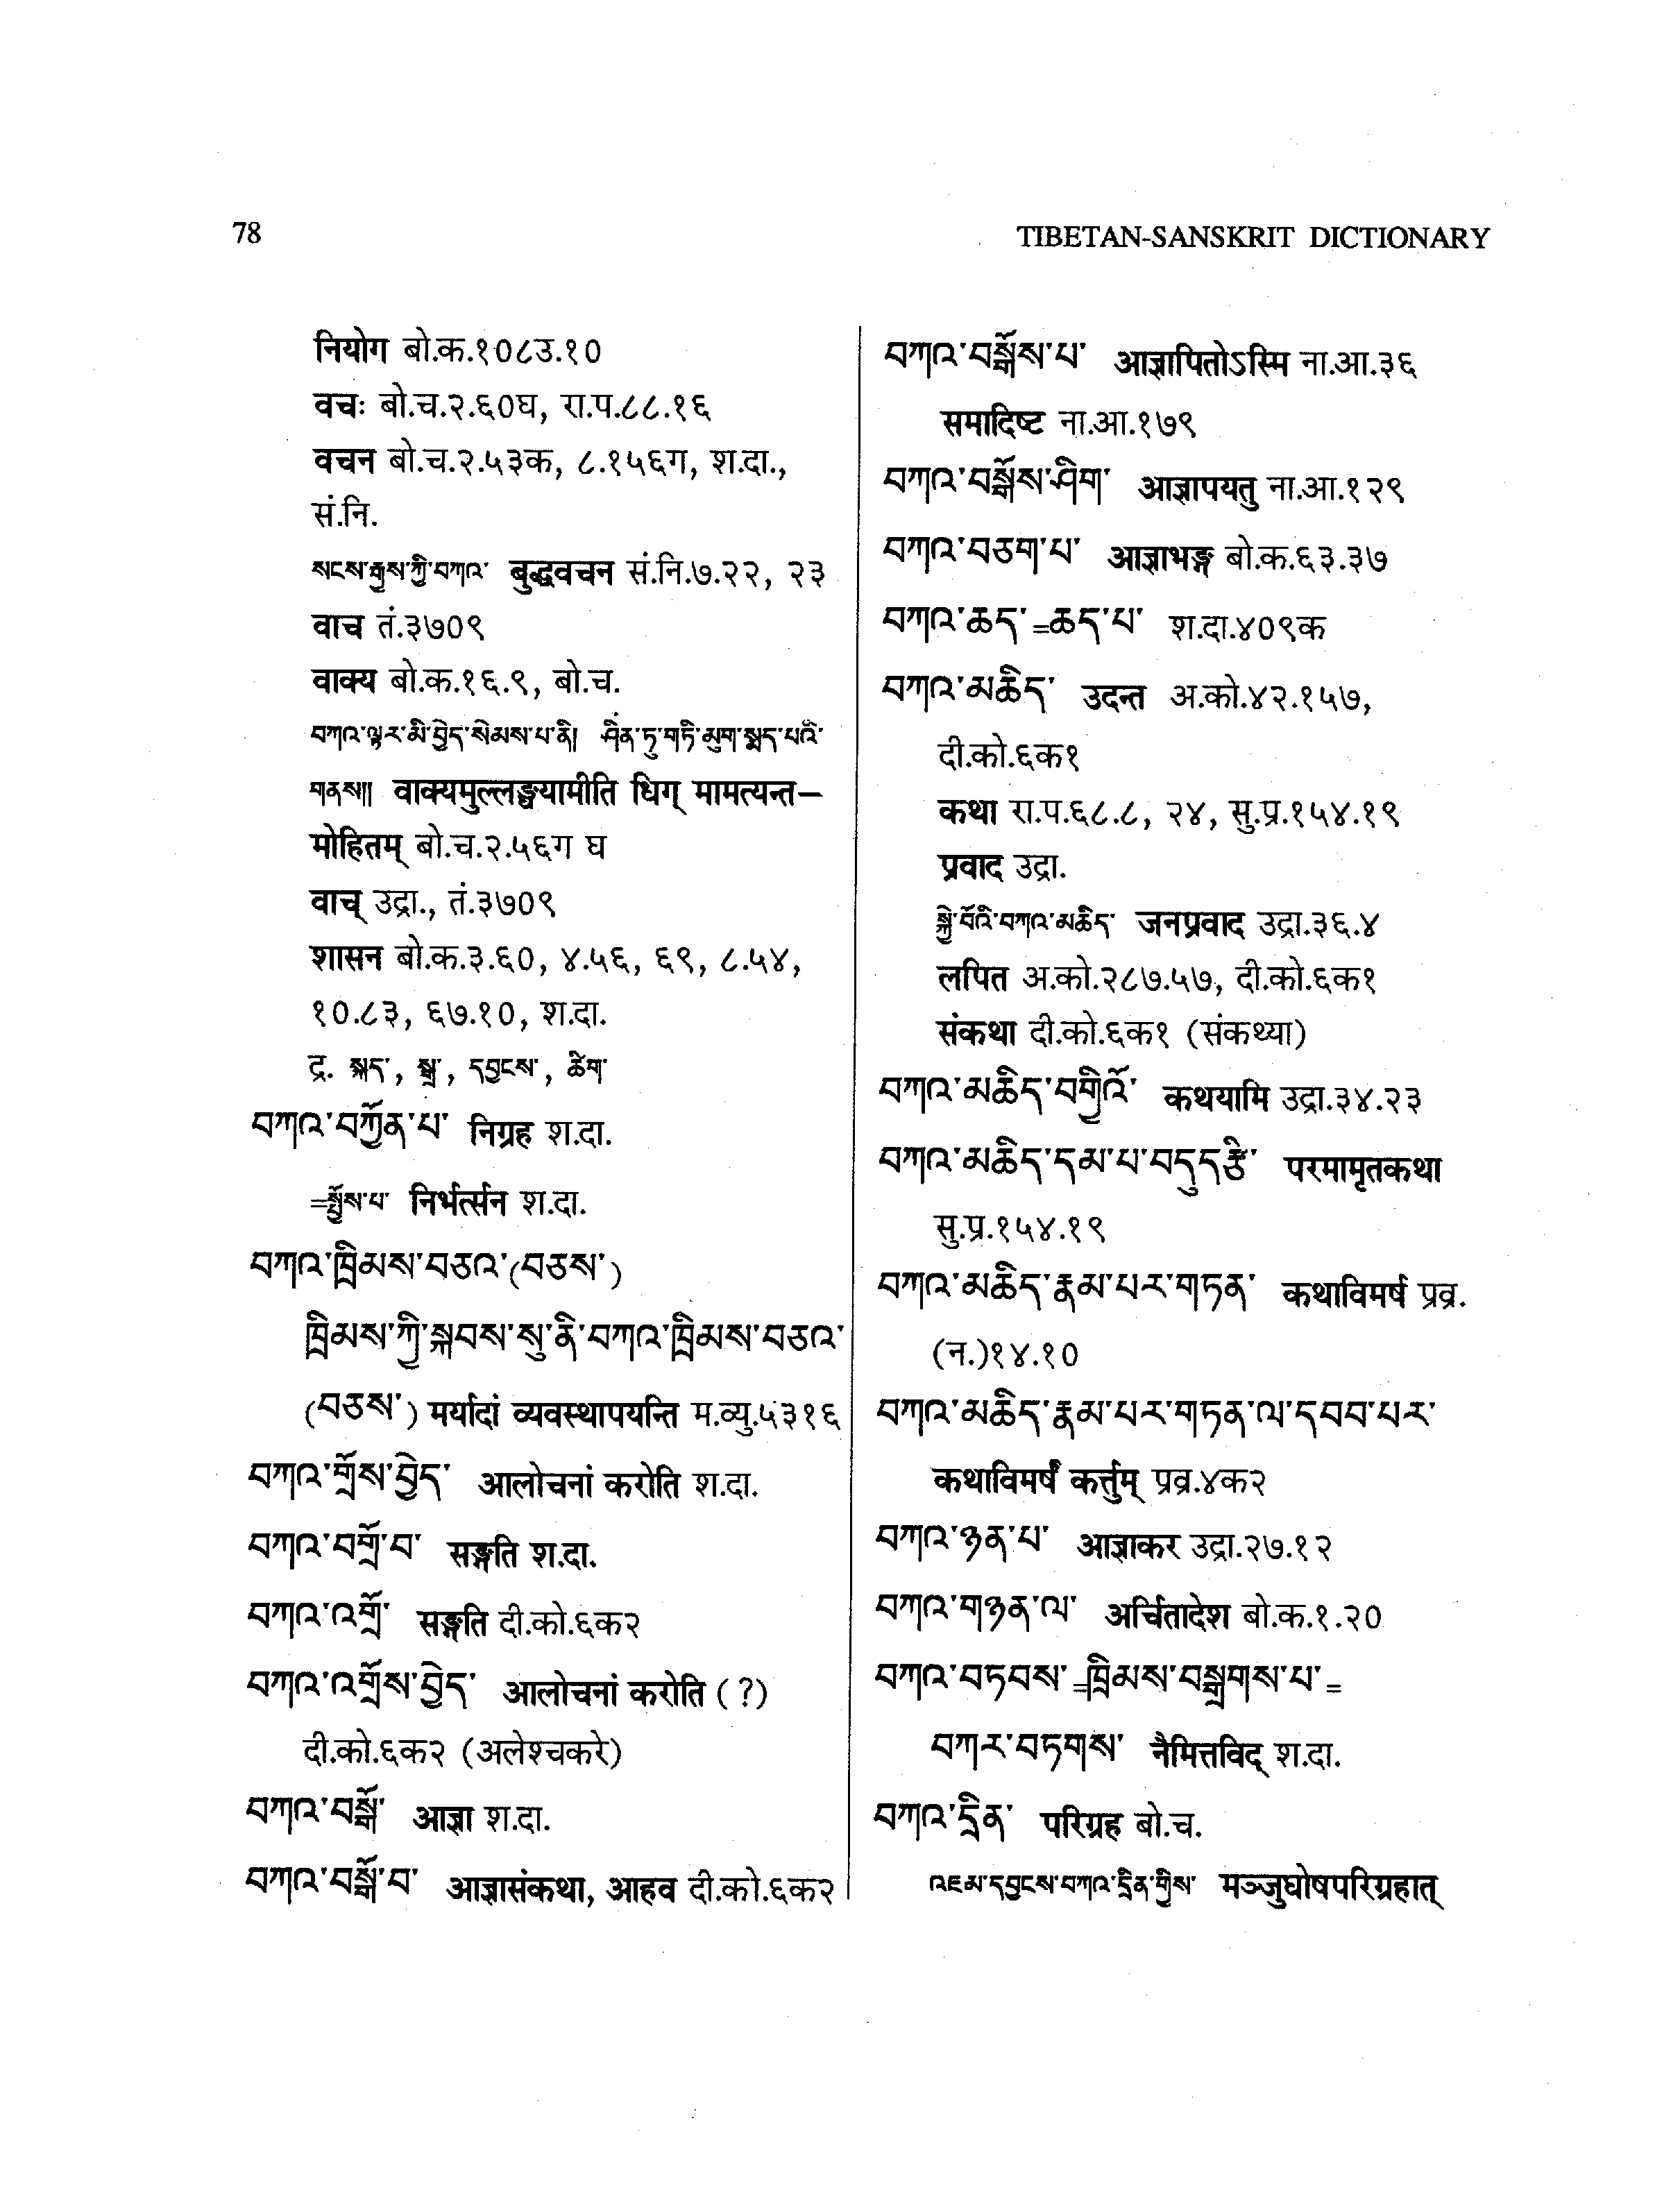 78
TIBETAN-SANSKRIT DICTIONARY
नियोग बो.क.१०८उ.१०
वचः बो.च.२.६०घ, रा.प.८८.१६
वचन बो.च.२.५३क, ८.१५६ग, श.दा.,
सं.नि.
སངས་རྒྱས་ཀྱི་བཀའ་ बुद्धवचन सं.नि.७.२२, २३
वाच तं.३७०९
वाक्य बो.क.१६.९, बो.च.
བཀའ་ལྟར་མི་བྱེད་སེམས་པ་ནི། ཤིན་ཏུ་གཏི་མུག་སྨད་པའི་
གནས།། वाक्यमुल्लङ्घयामीति धिग् मामत्यन्त–
मोहितम् बो.च.२.५६ग घ
वाच् उद्रा., तं.३७०९
शासन बो.क.३.६०, ४.५६, ६९, ८.५४,
१०.८३, ६७.१०, श.दा.
द्र. སྐད་, སྒྲ་, དབྱངས་, ཚིག་
བཀའ་བཀྱོན་པ་ निग्रह श.दा.
=སྤྱོས་པ་ निर्भर्त्सन श.दा.
བཀའ་ཁྲིམས་བཅའ་(བཅས་)
ཁྲིམས་ཀྱི་སྐབས་སུ་ནི་བཀའ་ཁྲིམས་བཅའ་
(བཅས་) मर्यादां व्यवस्थापयन्ति म.व्यु.५३१६
བཀའ་གྲོས་བྱེད་ आलोचनां करोति श.दा.
བཀའ་བགྲོ་བ་ सङ्गति श.दा.
བཀའ་འགྲོ་ सङ्गति दी.को.६क२
བཀའ་འགྲོས་བྱེད་ आलोचनां करोति (?)
दी.को.६क२ (अलेश्चकरे)
བཀའ་བསྒོ་ आज्ञा श.दा.
བཀའ་བསྒོ་བ་ आज्ञासंकथा, आहव दी.को.६क२
བཀའ་བསྒོས་པ་ आज्ञापितोऽस्मि ना.आ.३६
समादिष्ट ना.आ.१७९
བཀའ་བསྒོས་ཤིག་ आज्ञापयतु ना.आ.१२९
བཀའ་བཅག་པ་ आज्ञाभङ्ग बो.क.६३.३७
བཀའ་ཆད་=ཆད་པ་ श.दा.४०९क
བཀའ་མཆིད་ उदन्त अ.को.४२.१५७,
दी.को.६क१
कथा रा.प.६८.८, २४, सु.प्र.१५४.१९
प्रवाद उद्रा.
སྐྱེ་བོའི་བཀའ་མཆིད་ जनप्रवाद उद्रा.३६.४
लपित अ.को.२८७.५७, दी.को.६क१
संकथा दी.को.६क१ (संकथ्या)
བཀའ་མཆིད་བགྱིའོ་ कथयामि उद्रा.३४.२३
བཀའ་མཆིད་དམ་པ་བདུད་རྩི་ परमामृतकथा
सु.प्र.१५४.१९
བཀའ་མཆིད་རྣམ་པར་གཏན་ कथाविमर्ष प्रव्र.
(न.)१४.१०
བཀའ་མཆིད་རྣམ་པར་གཏན་ལ་དབབ་པར་
कथाविमर्षं कर्त्तुम् प्रव्र.४क२
བཀའ་ཉན་པ་ आज्ञाकर उद्रा.२७.१२
བཀའ་གཉན་ལ་ अर्चितादेश बो.क.१.२०
བཀའ་བཏབས་=ཁྲིམས་བསྒྲགས་པ་=
བཀར་བཏགས་ नैमित्तविद् श.दा.
བཀའ་དྲིན་ परिग्रह बो.च.
འཇམ་དབྱངས་བཀའ་དྲིན་གྱིས་ मञ्जुघोषपरिग्रहात्